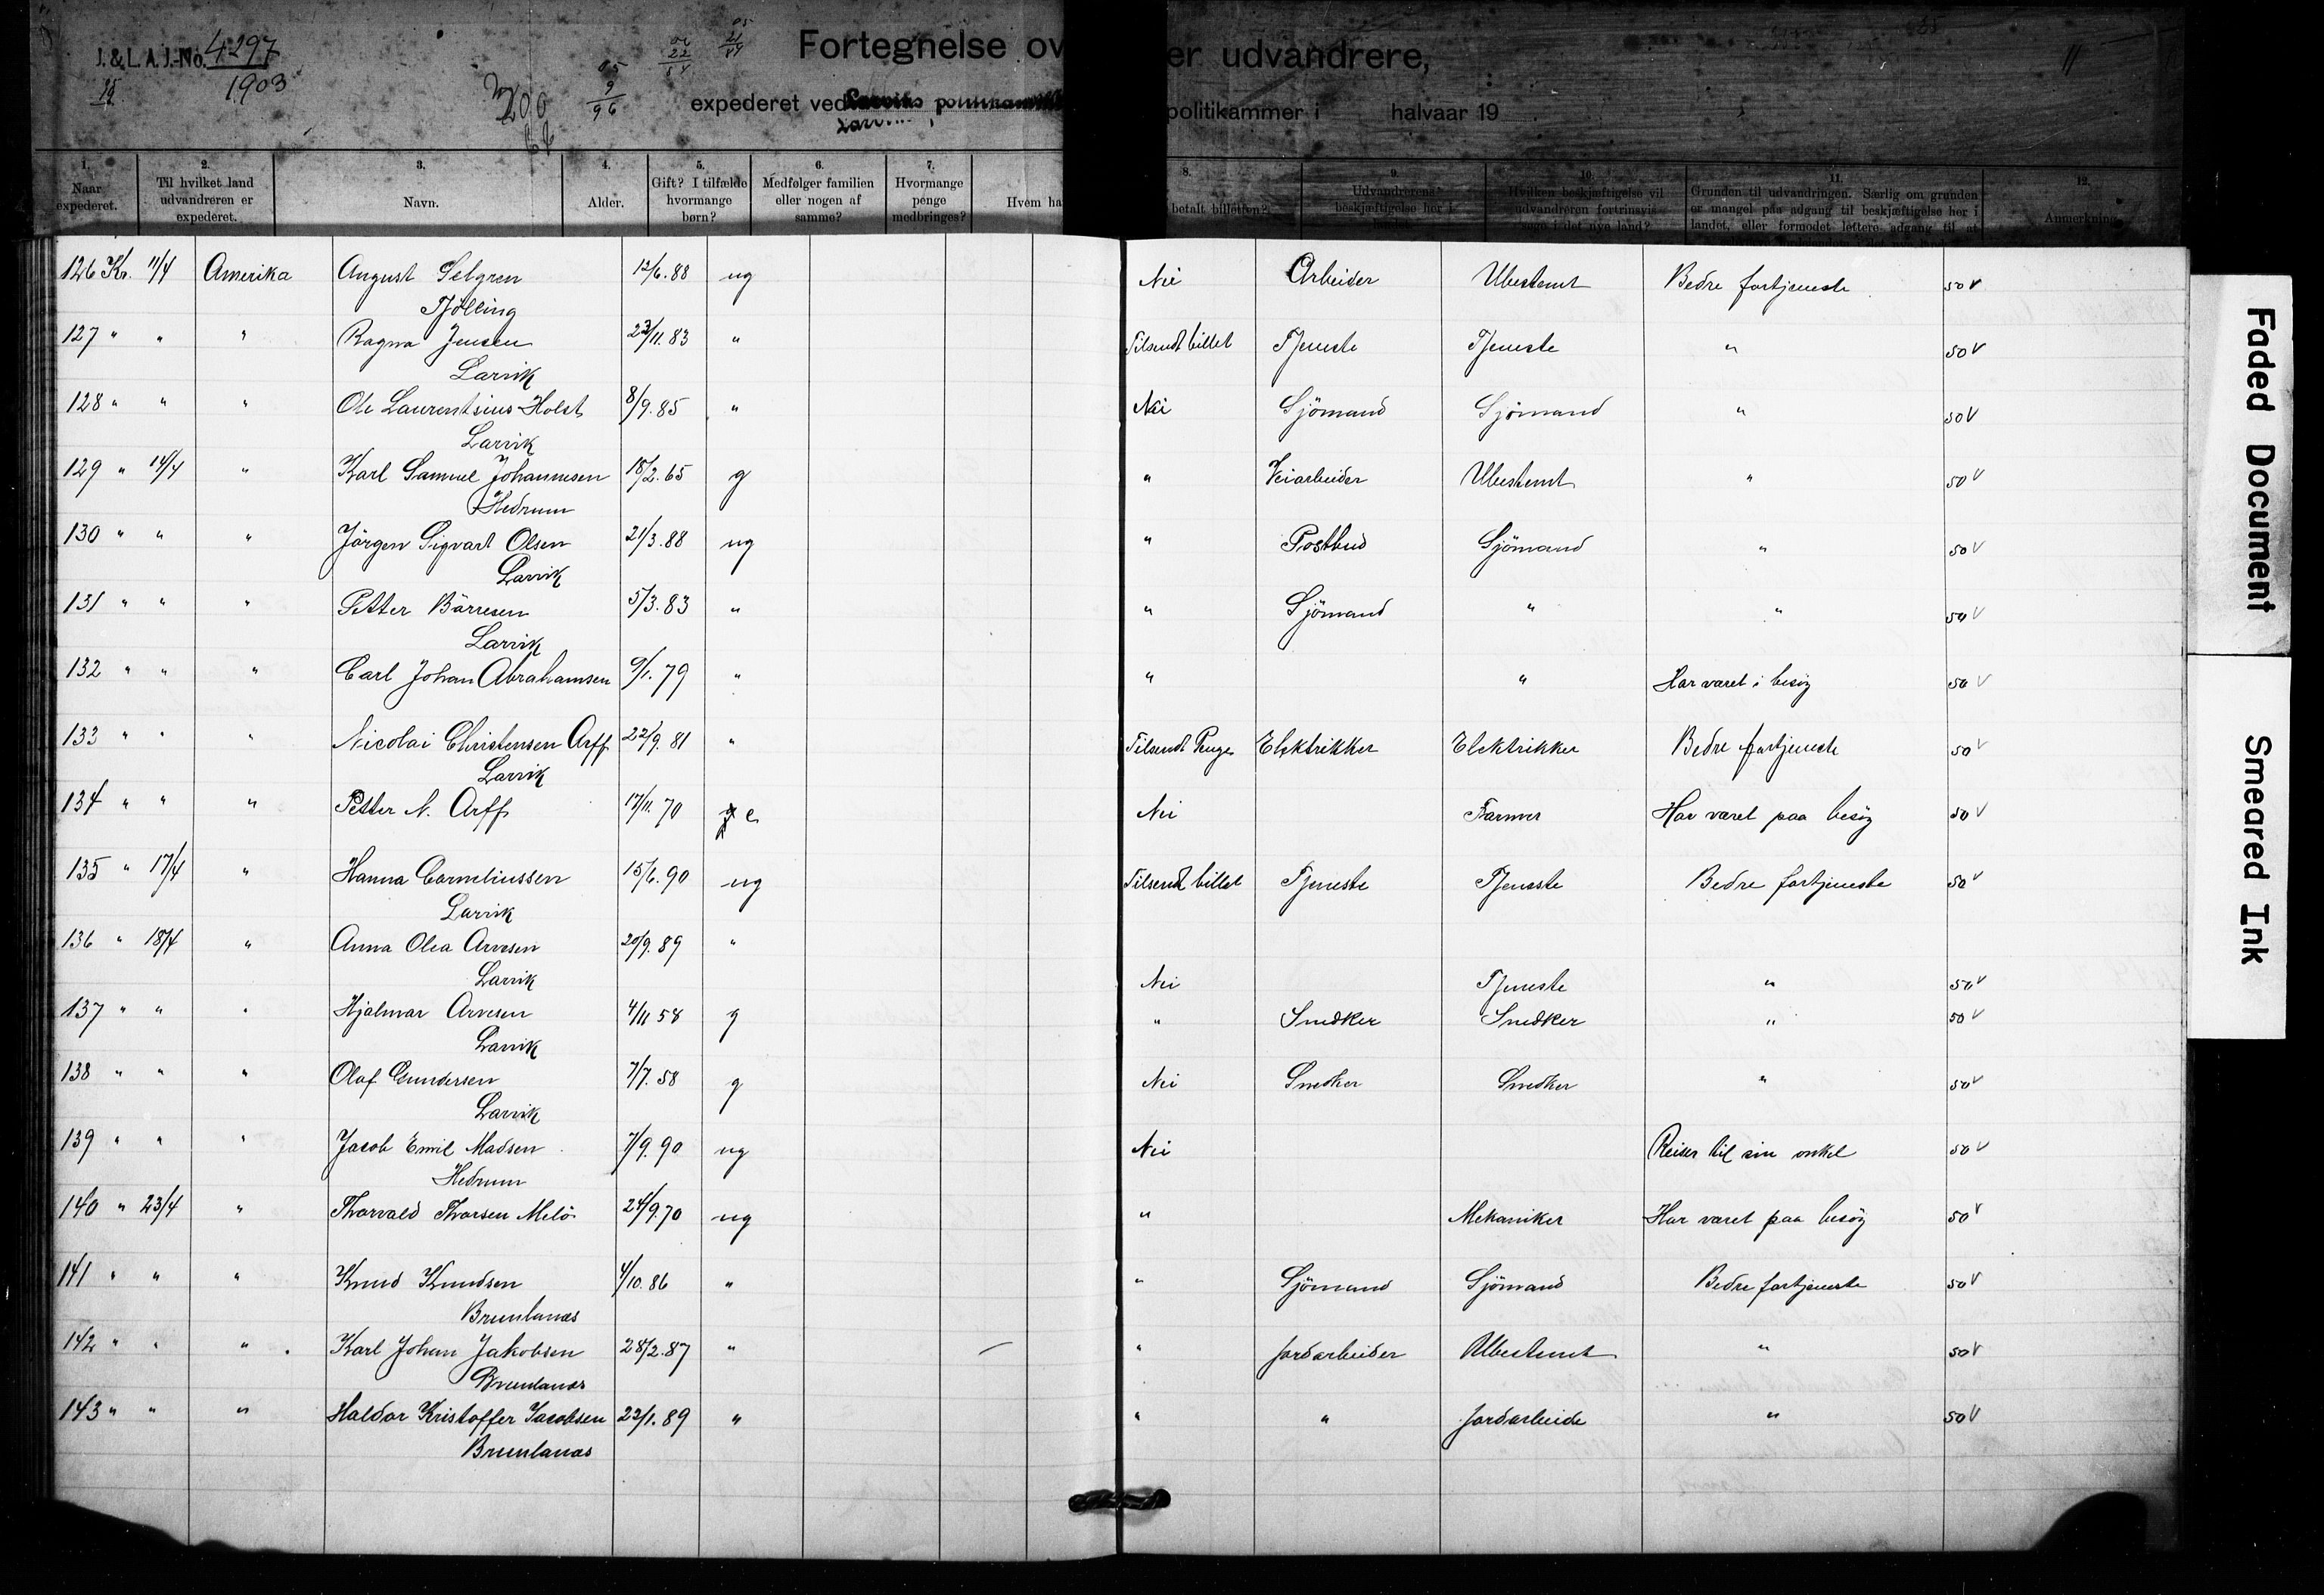 J. & L. A. J.-No. 4297
1903
Fortegnelse over udvandrere,
expederet ved Larviks politikammer i halvaar 19
1. Naar expederet.
2. Til hvilket land udvandreren er expederet.
3. Navn.
4. Alder.
5. Gift? I tilfælde hvormange børn?
6. Medfølger familien eller nogen af samme?
7. Hvormange penge medbringes?
8. Hvem ha betalt billetten?
9. Udvandrerens beskjæftigelse her i
10. Hvilken beskjæftigelse vil udvandreren fortrinsvis søge i det nye land?
11. Grunden til udvandringen. Særlig om grunden er mangel paa adgang til beskjæftigelse her i landet, eller formodet lettere adgang til at
12. Anmerkning
126 Kr. 11/4 Amerika August Selgren 12/6.88 ug Nei Arbeider Ubestemt Bedre fortjeneste 50 V
Tjölling
127 " " " Ragna Jensen 23/11.83 " Tilsendt billet Tjeneste Tjeneste " 50 V
Larvik
128 " " " Ole Laurentsius Holst 8/9.85 " Nei Sjömand Sjömand " 50 V
Larvik
129 " 14/4 " Karl Samuel Johannesen 18/2.65 g " Veiarbeider Ubestemt " 50 V
Hedrum
130 " " " Jörgen Sigvart Olsen 21/3.88 ug " Postbud Sjömand " 50 V
Larvik
131 " " " Petter Börresen 5/3.83 " " Sjömand " " 50 V
Larvik
132 " " " Carl Johan Abrahamsen 9/1.79 " " " Har været i besög 50 V
133 " " " Nicolai Christensen Arff 22/9.81 " Tilsendt Penge Elektrikker Elektrikker Bedre fortjeneste 50 V
Larvik
134 " " " Petter N. Arff 17/11.70 e Nei Farmer Har været paa besög 50 V
135 " 17/4 " Hanna Corneliussen 15/6.90 ug Tilsendt billet Tjeneste Tjeneste Bedre fortjeneste 50 V
Larvik
136 " 18/4 " Anna Olea Arvesen 20/9.89 "
Larvik Nei Tjeneste " 50 V
137 " " " Hjalmar Arvesen 4/11 58 g " Snedker Snedker " 50 V
Larvik
138 " " " Olaf Gundersen 7/7.58 g Nei Snedker Snedker " 50 V
Larvik
139 " " " Jacob Emil Madsen 7/9.90 ug Nei Reiser til sin onkel 50 V
Hedrum
140 " 23/4 " Thorvald Thorsen Melö 24/9.70 ug " Mekaniker Har været paa besög 50 V
141 " " " Knud Knudsen 4/10.86 " " Sjömand Sjömand Bedre fortjeneste 50 V
Brunlanæs
142 " " " Karl Johan Jakobsen 28/2.87 " — " Jordarbeider Ubestemt " 50 V
Brunlanæs
143 " " " Haldor Kristoffer Jacobsen 22/1.89 " " " Jordarbeide " 50 V
Brunlanæs
Faded Document
Smeared Ink